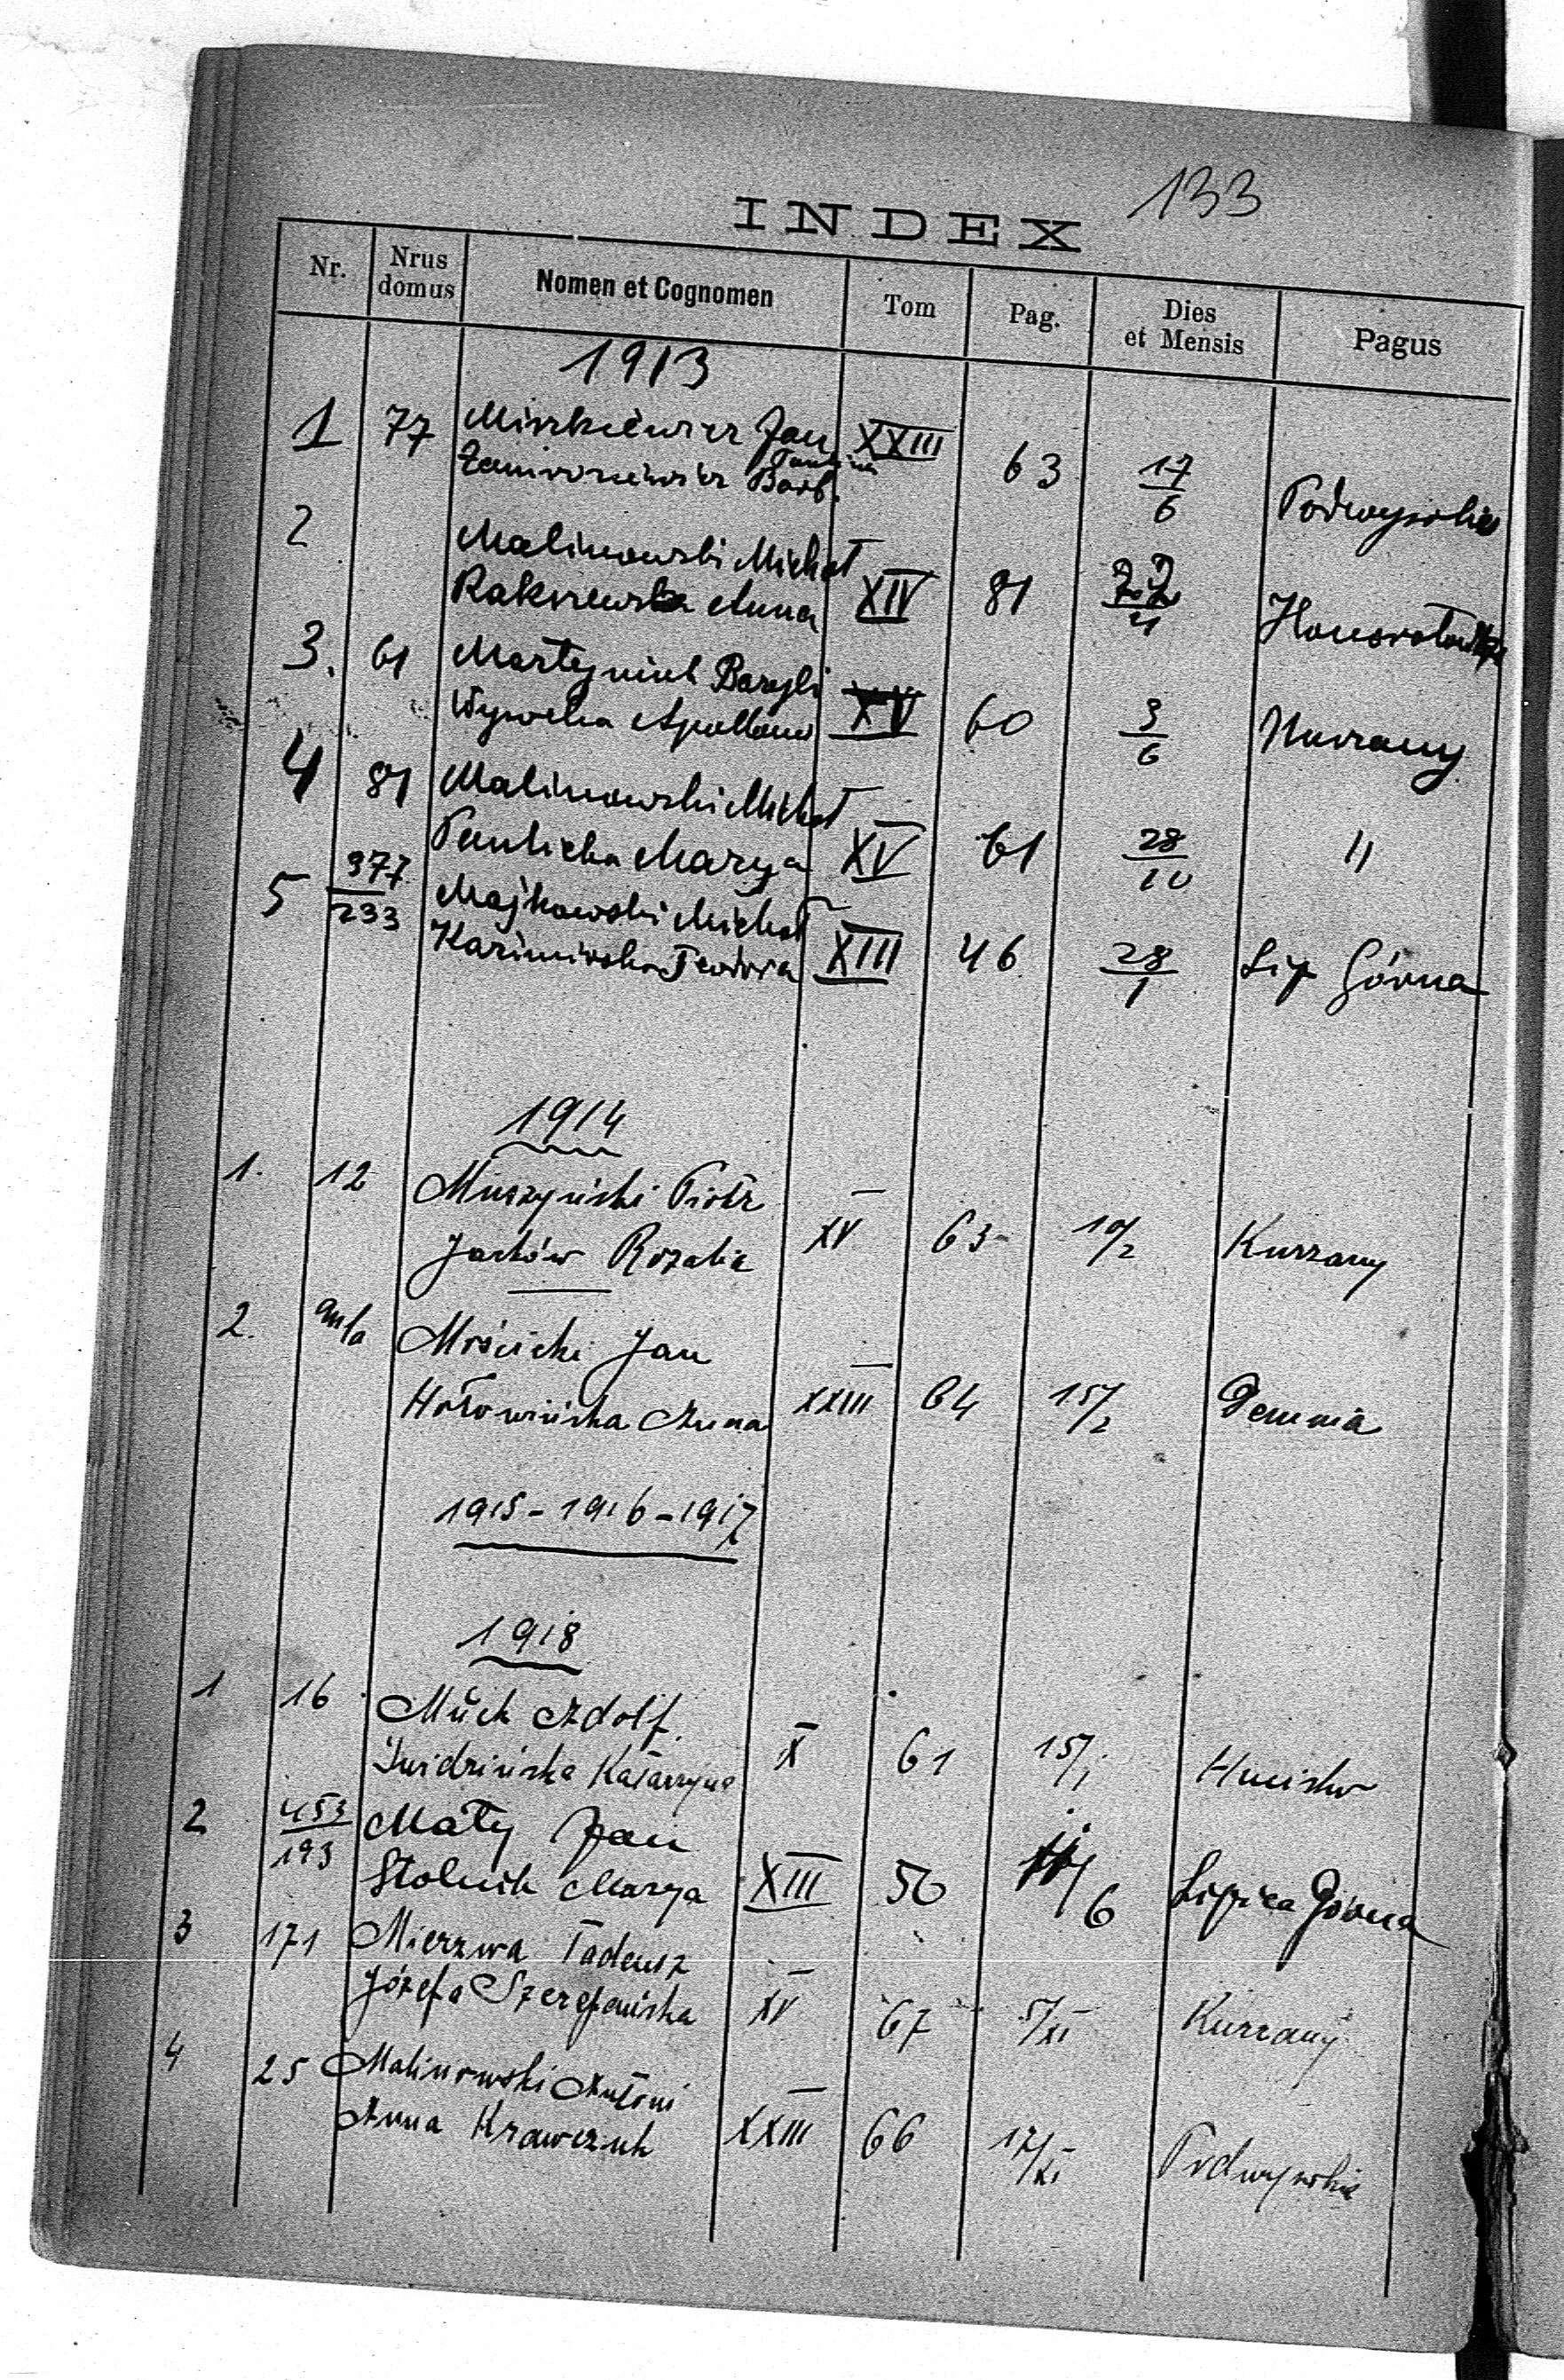 133
INDEX
Nr. Nrus domus Nomen et Cognomen Tom Pag. Dies et Mensis Pagus
1913
1 77 Jan XXIII 63 17/6 Podwysokie
Barb.
2 Malinowski Michał XIV 81 4
Rakszewska Anna
3. 61 Martyniuk Bazyli XV 60 3/6
Wysocka
4 81 Malinowski Michał XV 61 28/10 "
Marya
5 377/233 Majkowski Michał XIII 46 28/1 Lip Górna
Teodora
1914
1. 12 Muszyński Piotr XV 63 10/2 Kurzany
Jasków Rozalia
2. Mościcki Jan XXIII 64 15/2 Demnia
Hołowińska Anna
1915-1916-1917
1918
1 16 Müch Adolf. X 61 15/1 Hucisko
Katarzyna
2 453/193 Mały Jan XIII 50 6 Lipica Górna
Stolnik Marya
3 171 Mierzwa Tadeusz XV 67 5/XI Kurzany
Józefa Szerefańska
4 25 Malinowski Antoni XXIII 66 17/XI Podwysokie
Anna Krawczuk